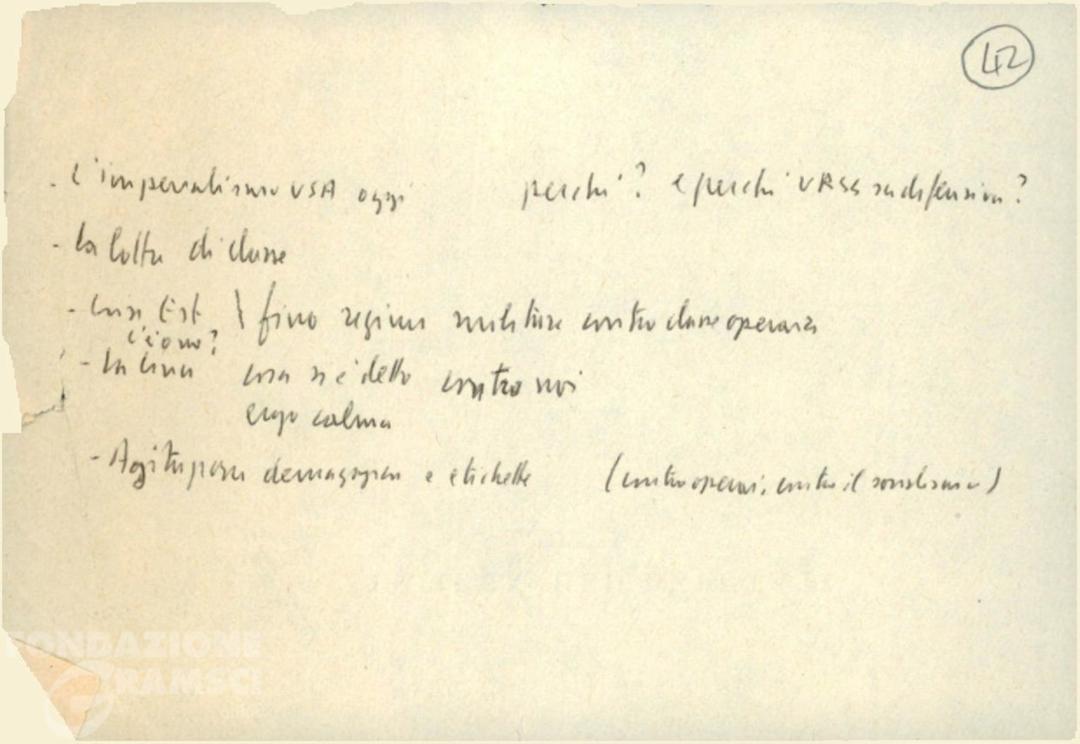 42
- L'imperialismo USA oggi perché? e perché URSS su difensiva?
- la lotta di classe
- crisi Est \ fino regime militare contro classe operaia
c'è o no?
- la Cina cosa si è detto contro noi
ergo calma
- demagogia e etichette (contro operai, contro il socialismo)
FONDAZIONE
GRAMSCI